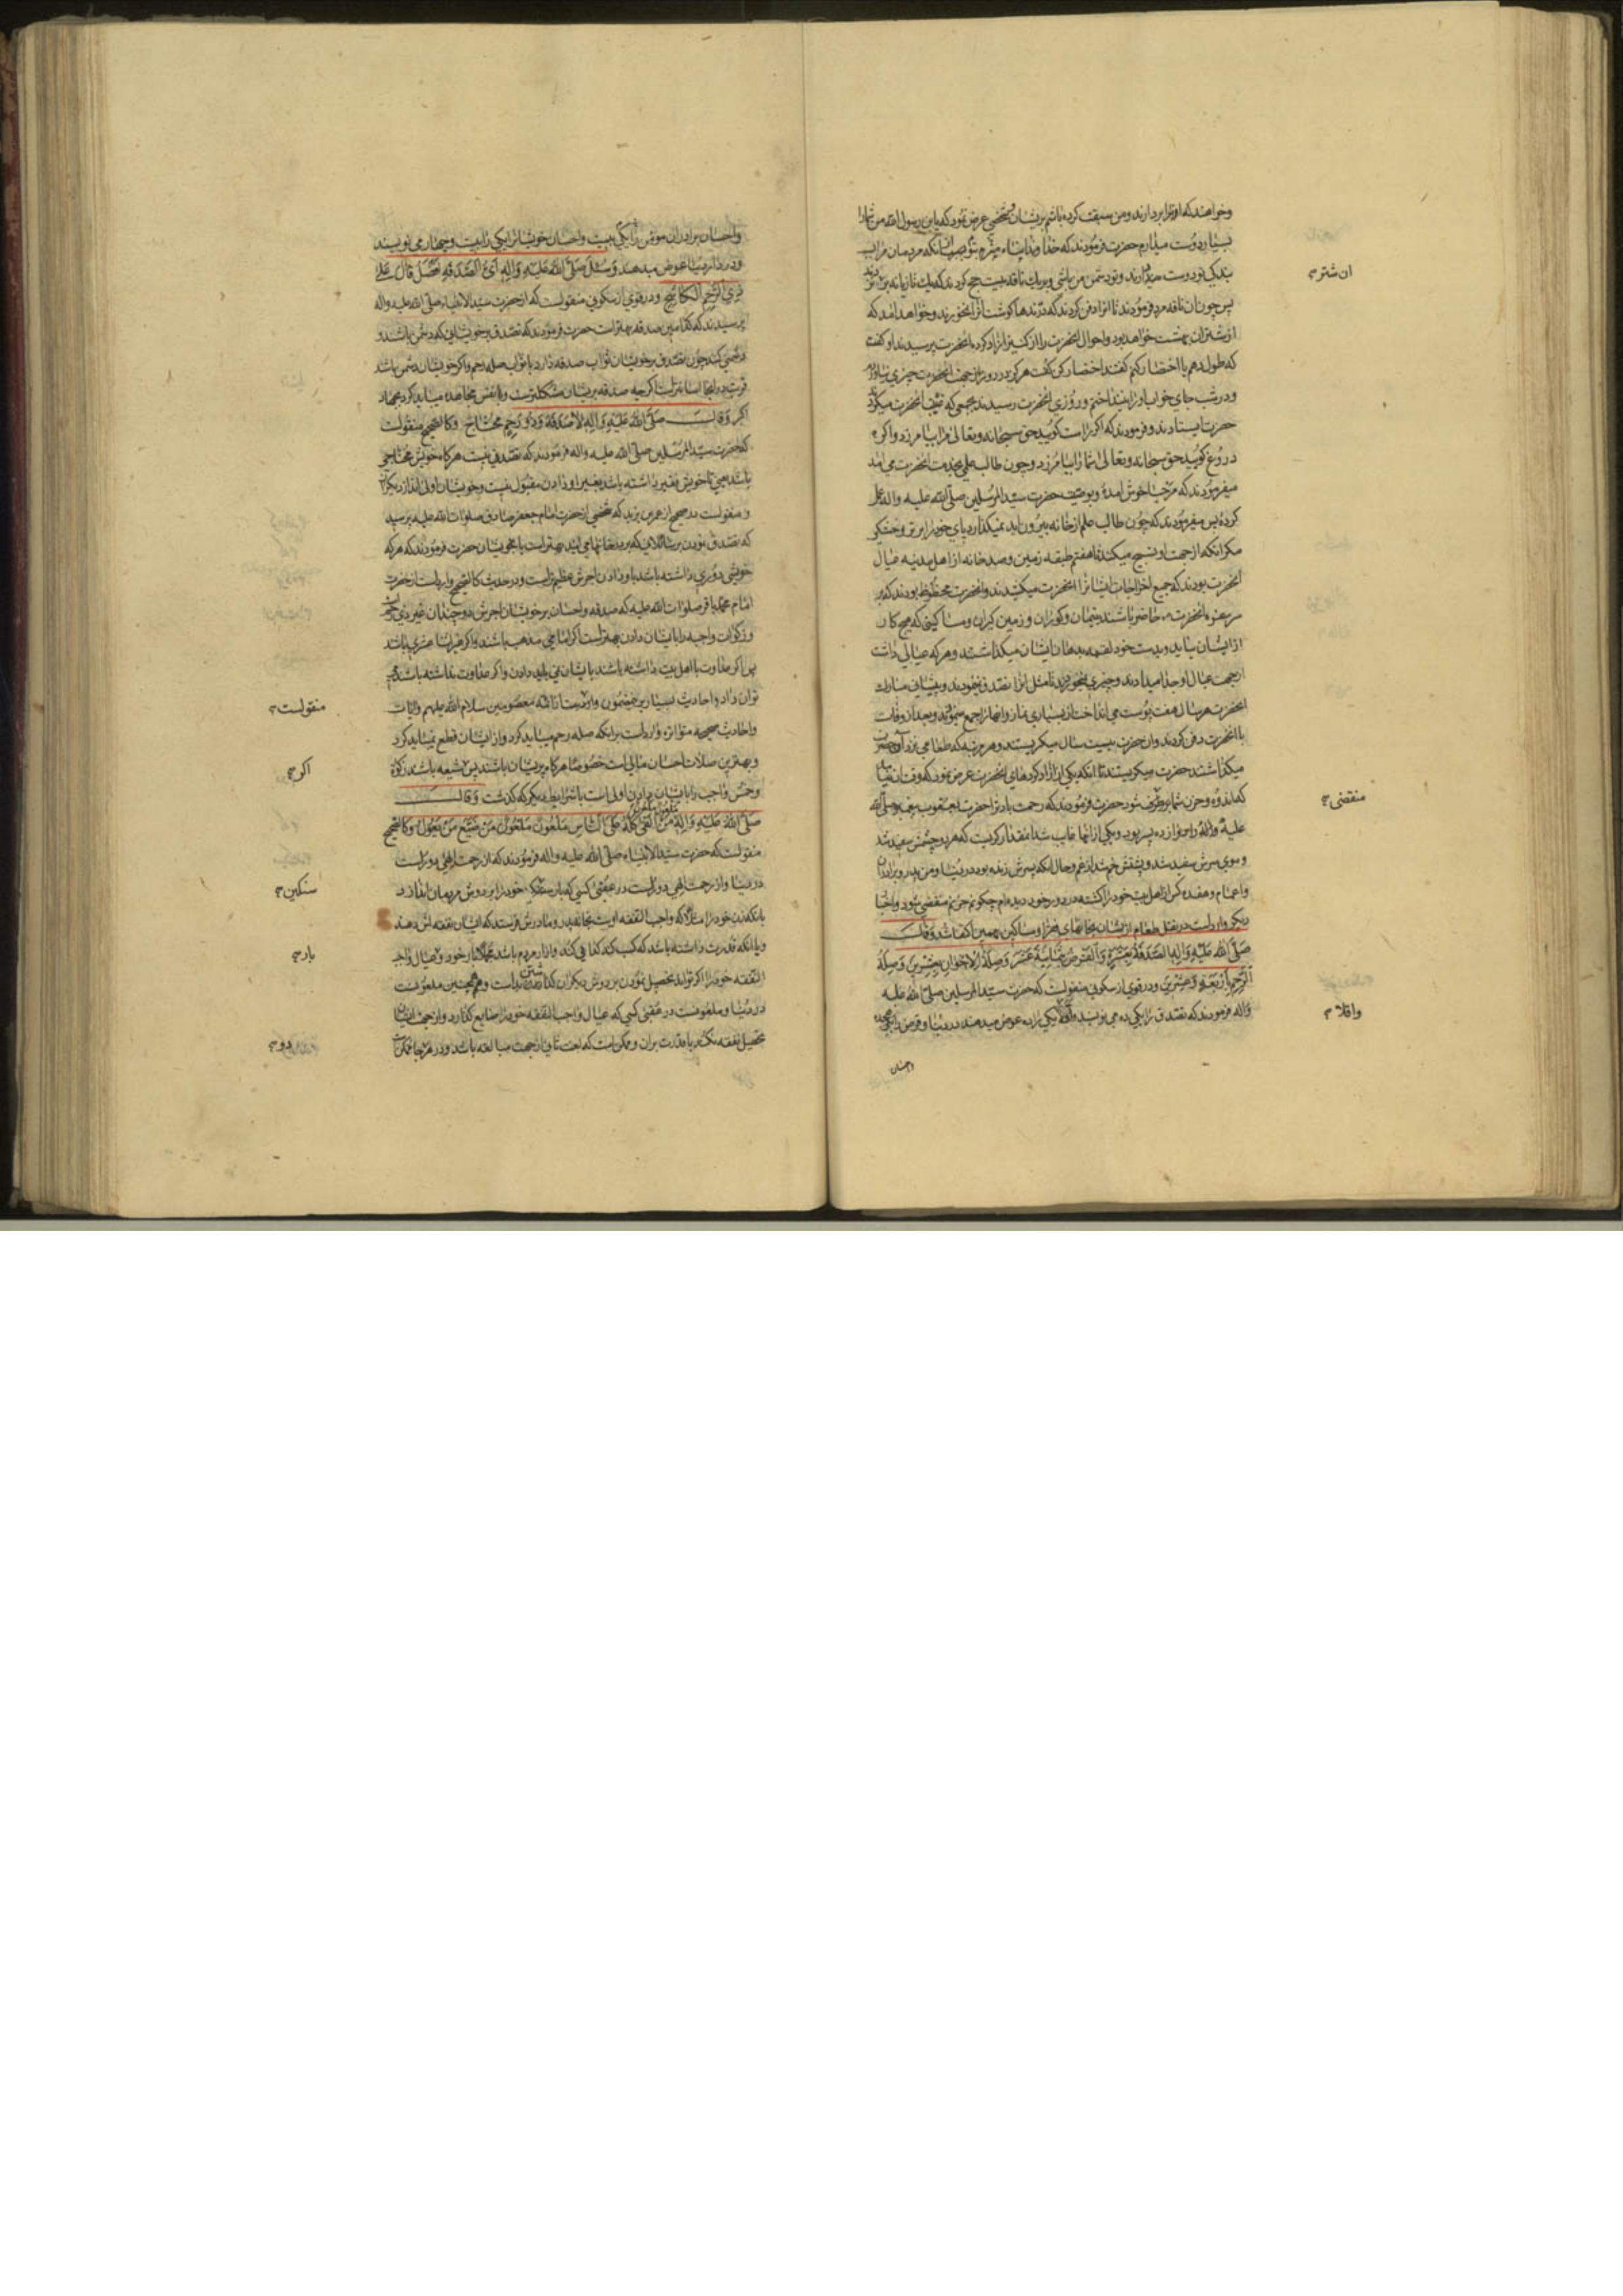 وخواهند که او را بردارند ومن سبقت کرده باشم بریشان وشخصی عرض نمود که یابن رسول الله من شما را
بسیار دوست میدارم حضرت فرمودند که خداوندا پناه میبرم بتو از آنکه مردمان مرا به
بندگی تو دوست دارند وتو دشمن من باشی وبر یک ناقه بیست حج کردند که یک تازیانه بران نزدند
پس چون آن ناقه مرد فرمودند تا انرا دفن کردند که درندها گوشت انرا نخورند
از شتران بهشت خواهد بود واحوال انحضرت را از کنیز ازاد کرده انحضرت پرسیدند او گفت
که طول دهم یا اختصار کنم گفتند اختصار کن گفت هرگز در روز از جهت انحضرت چیزی نیاوردم
ودر شب جای خواب او را نینداختم وروزی انحضرت رسیدند بجمعی که غیبت انحضرت میکردند
حضرت ایستادند وفرمودند که اگر راست گویید حق سبحانه وتعالی مرا بیامرزد واگر
دروغ گویید حق سبحانه وتعالی شما را بیامرزد وچون طالب علمی بخدمت انحضرت می امد
میفرمودند که مرحبا خوش امدهٔ وبوصیت حضرت سید المرسلین صلی الله علیه واله عمل
کردهٔ پس میفرمودند که چون طالب علم از خانه بیرون اید نمیگذارد پای خود را بر تر وخشکی
مگر انکه از جهت او تسبیح میکند تا هفتم طبقه زمین وصد خانه از اهل مدینه عیال
انحضرت بودند که جمیع اخراجات ایشانرا انحضرت میکشیدند وانحضرت محظوظ بودند که بر
سر سفره انحضرت حاضر باشند یتیمان وکوران وزمین گیران ومساکینی که هیچ کار
از ایشان نیاید وبدست خود لقمه بدهان ایشان میگذاشتند وهر که عیالی داشت
از جهت عیال او جدا میدادند وچیزی نمیخوردند تا مثل انرا تصدق نمینمودند وپیشانی مبارک
انحضرت هر سال هفت پوست می انداخت از بسیاری نماز وانها را جمع مینمودند وبعد از وفات
با انحضرت دفن کردند وان حضرت بیست سال میگریستند وهر مرتبه که طعامی نزد آن حضرت
میگذاشتند حضرت میگریستند تا انکه یکی از ازاد کردهای انحضرت عرض نمود که وقت ان نشد
که اندوه وحزن شما برطرف شود حضرت فرمودند که رحمت باد ترا حضرت یعقوب پیغمبر صلی الله
علیه واله را دوازده پسر بود ویکی از انها غایب شد انمقدار گریست که هر دو چشمش سفید شد
وموی سرش سفید شد وپشتش خم شد از غم وحال انکه پسرش زنده بود در دنیا ومن پدر وبرادران
واعمام وهفده کس از اهل بیت خود را کشته در دور خود دیده ام چگونه حزنم منقضی شود واخبار
دیگر وارد است در نقل طعام از ایشان بخانهای فقرا ومساکین بهمین اکتفا شد وَقَالَ
صَلَّی اللهُ عَلَیْهِ وَآلِهِ الصَّدَقَةُ بِعَشَرَةٍ وَالْقَرْضُ بِثَمَانِیَةَ عَشَرَ وَصِلَةُ الْاِخْوَانِ بِعِشْرِینَ وَصِلَةُ
الرَّحِمِ بِأَرْبَعَةٍ وَعِشْرِینَ ودر قوی از سکونی منقولست که حضرت سید المرسلین صلی الله علیه
واله فرمودند که تصدق را یکی ده می نویسند یکی را ده عوض میدهند در دنیا وقرض را یکی هجده
واحسان
ان شتر
منقضی
واقلا
واحسان برادران مومن را یکی بیست واحسان خویشانرا یکی را بیست وچهار می نویسند
ودر دار دنیا عوض میدهند وَسُئِلَ صَلَّی اللهُ عَلَیْهِ وَآلِهِ أَیُّ الصَّدَقَةِ أَفْضَلُ قَالَ عَلَی
ذِی الرَّحِمِ الْکَاشِحِ ودر قوی از سکونی منقولست که از حضرت سید الانبیاء صلی الله علیه واله
پرسیدند که کدامین صدقه بهتر است حضرت فرمودند که تصدق بر خویشانی که دشمن باشند و
دشمنی کنند چون تصدق بر خویشان ثواب صدقه دارد با ثواب صله رحم واگر خویشان دشمن باشند
اگرچه صدقه بریشان مشکلترست وبا نفس مجاهده میباید کرد جهاد
اکبر وَقَالَ صَلَّی اللهُ عَلَیْهِ وَآلِهِ لَا صَدَقَةَ وَذُو رَحِمٍ مُحْتَاجٌ وکالصحیح منقولست
که حضرت سید المرسلین صلی الله علیه واله فرمودند که تصدقی نیست هرگاه خویش محتاجی
باشد یعنی تا خویش فقیر داشته باشد بغیر او دادن مقبول نیست وخویشان اولی اند از دیگران
ومنقولست در صحیح از عمر بن یزید که شخصی از حضرت امام جعفر صادق صلوات الله علیه پرسید
که تصدق نمودن بر سائلانی که بر در خانها می ایند بهتر است یا بخویشان حضرت فرمودند که هر که
خویشی دوری داشته باشد باو دادن اجرش عظیم تر است ودر حدیث کالصحیح وارد است از حضرت
امام محمد باقر صلوات الله علیه که صدقه واحسان بر خویشان اجرش دو چندان غیر ذی رحم
وزکوات واجبه را بایشان دادن بهتر است اگر امامی مذهب باشند واگر غیر اثنا عشری باشند
پس اگر عداوت با اهل بیت داشته باشند بایشان نمی باید دادن واگر عداوت نداشته باشند
توان داد واحادیث بسیار برین مضمون وارد است از ائمه معصومین سلام الله علیهم وایات
واحادیث صحیحه متواتره وارد است بر انکه صله رحم میباید کرد واز ایشان قطع نمیباید کرد
وبهترین صلات احسان مالی است خصوصا هرگاه پریشان باشند پس شیعه باشند زکوة
وخمس واجب را بایشان دادن اولی است با شرایط دیگر که گذشت وَقَالَ
صَلَّی اللهُ عَلَیْهِ وَآلِهِ مَلْعُونٌ مَلْعُونٌ مَنْ أَلْقَی کَلَّهُ عَلَی النَّاسِ مَلْعُونٌ مَلْعُونٌ مَنْ ضَیَّعَ مَنْ یَعُولُ وکالصحیح
منقولست که حضرت سید الانبیاء صلی الله علیه واله فرمودند که از رحمت الهی دور است
در دنیا واز رحمت الهی دور است در عقبی کسی که بار سنگین خود را بر دوش مردمان اندازد
بانکه زن خود را مثلا که واجب النفقه اوست بخانه پدر ومادرش فرستد که ایشان نفقه اش دهند
ویا انکه قدرت داشته باشد که کسب کند کفافی کند وازار مردم باشد بار خود وعیال واجب
النفقه خود را اگر تواند تحصیل نمودن بر دوش دیگران وهمچنین ملعونست
در دنیا وملعونست در عقبی کسی که عیال واجب النفقه خود را ضایع گذارد واز جهت ایشان
تحصیل نفقه نکند با قدرت بران وممکن است که لعنت ثانی از جهت مبالغه باشد ودر هر جا ممکن است
منقولست
اکر
سنکین
بار
دو